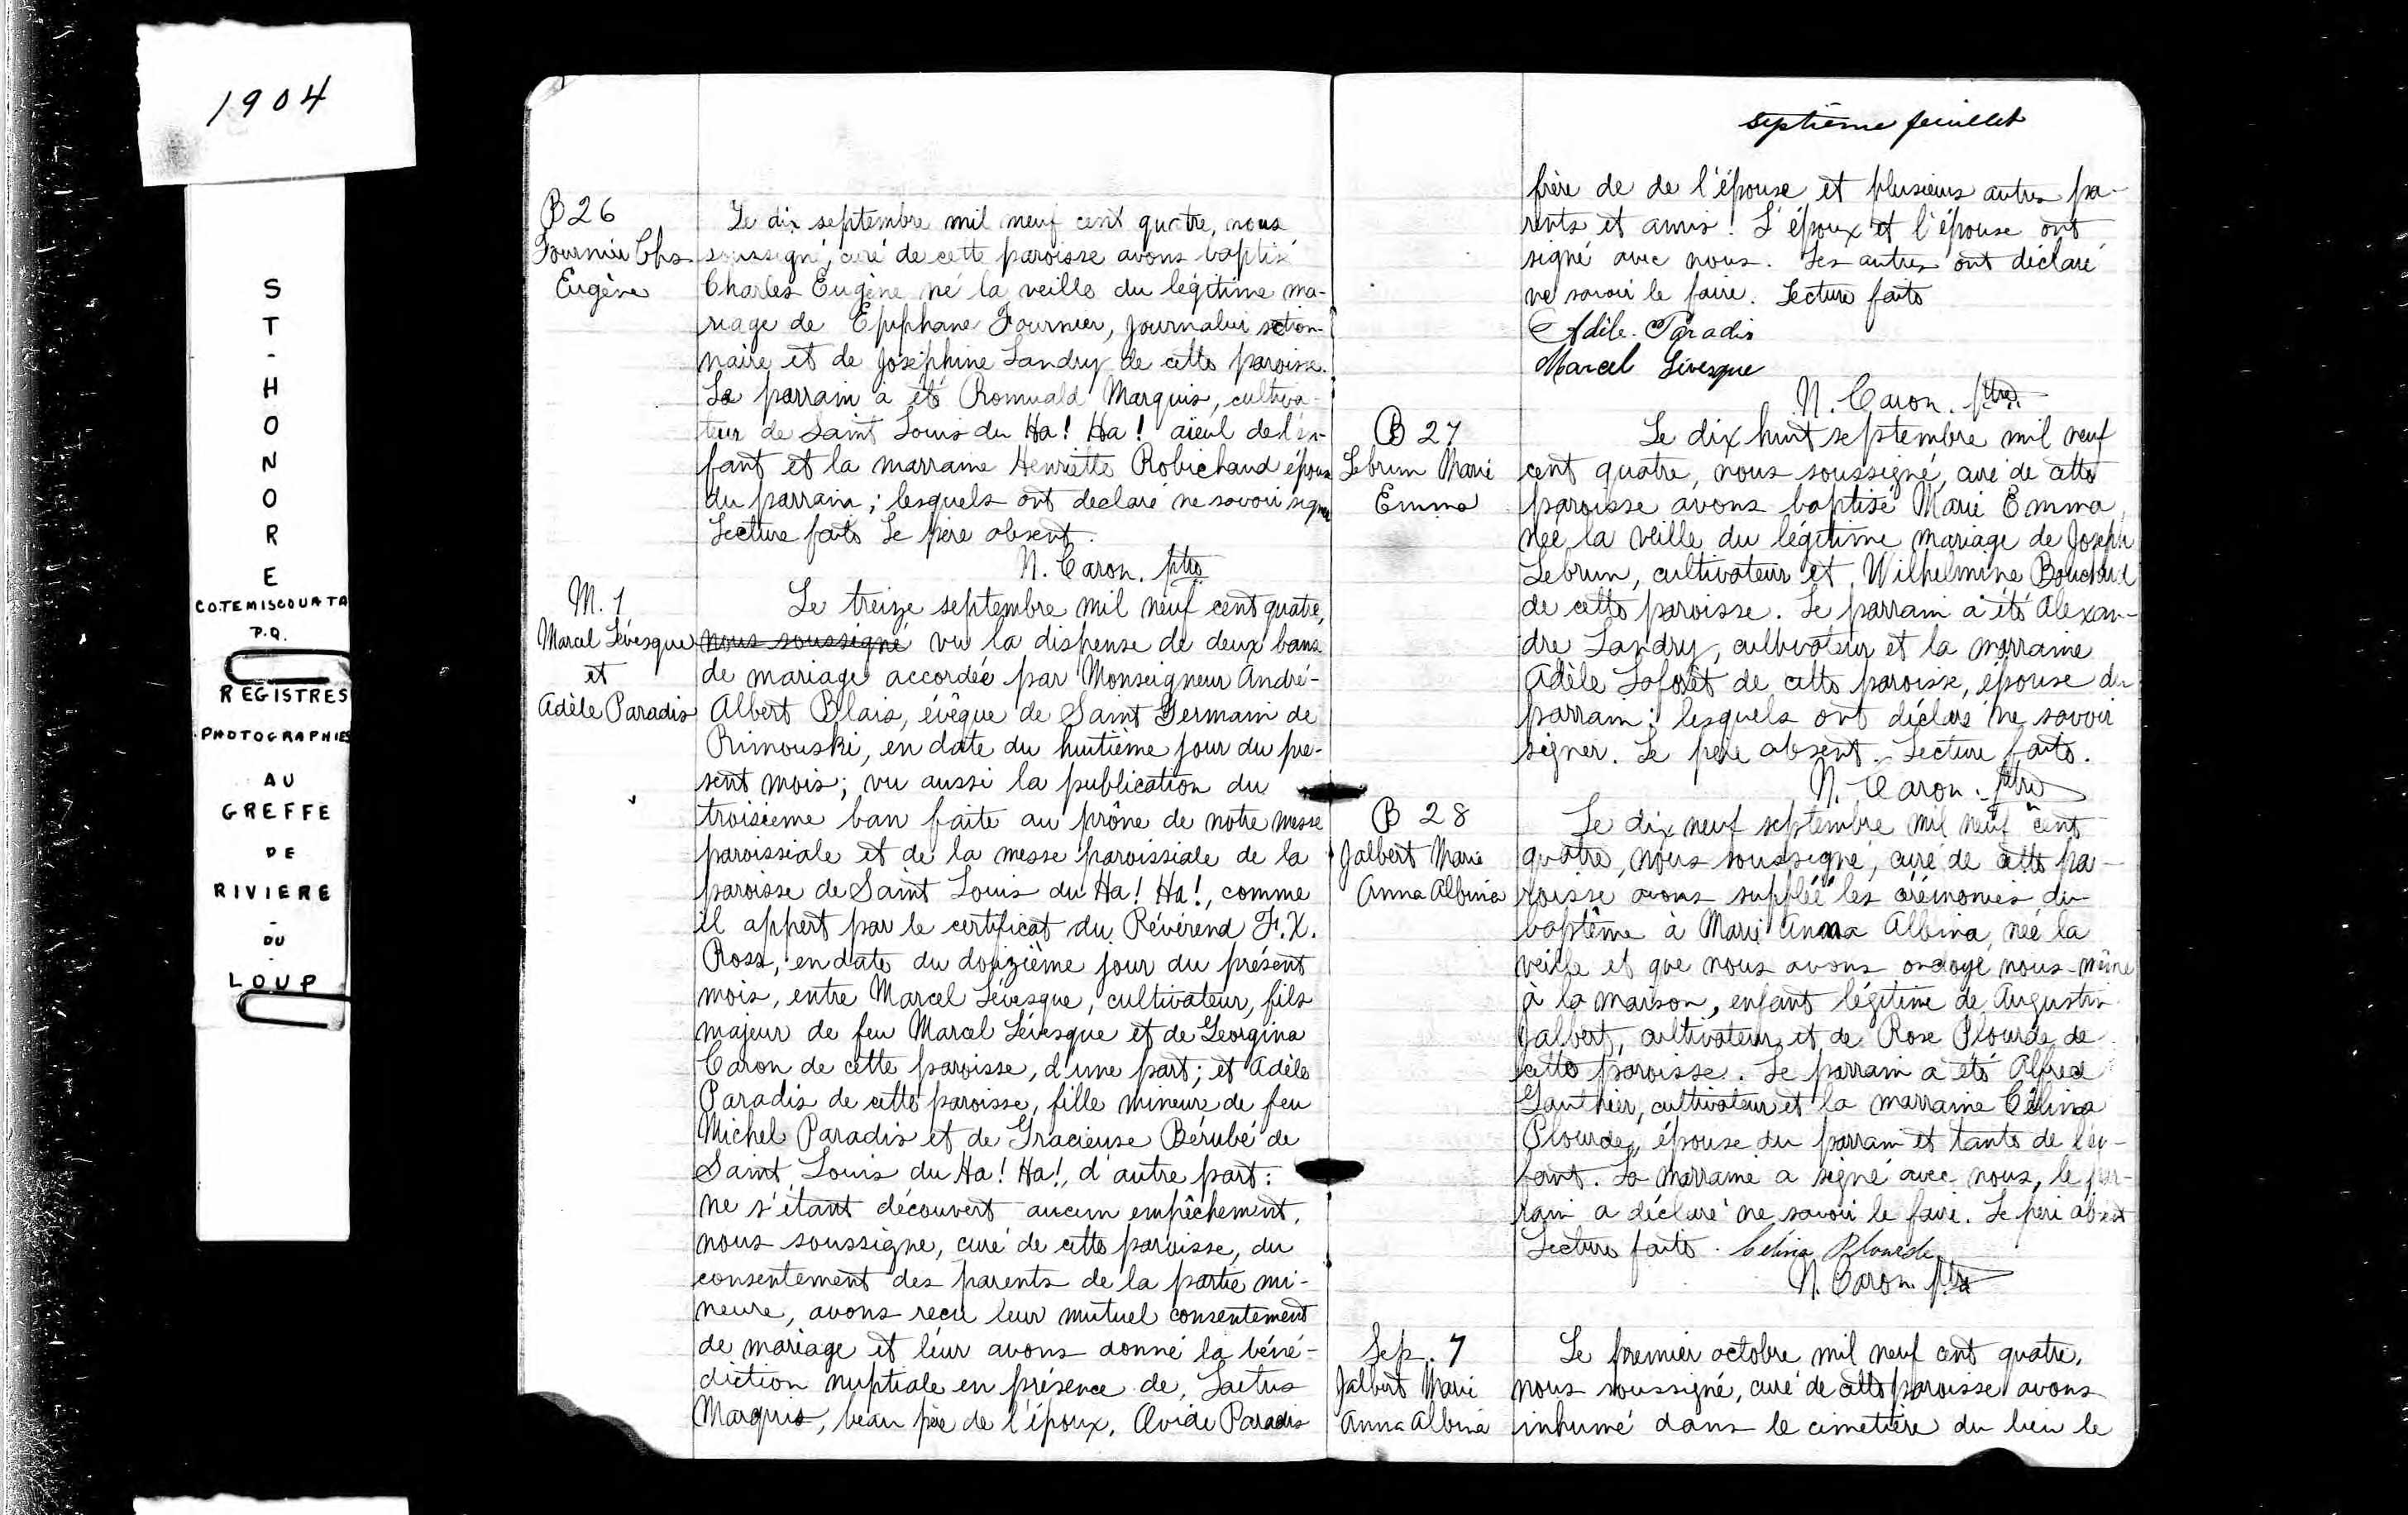 1904
ST-HONORE
CO.TEMISCOUATA
P.Q.
REGISTRES
PHOTOGRAPHIES
AU
GREFFE
DE
RIVIERE
-
DU
-
LOUP
B 26
Fournier Chs
Eugène
Le dix septembre mil neuf cent quatre, nous
soussigné, curé de cette paroisse avons baptisé
Charles Eugène né la veille du légitime ma-
riage de Epiphane Fournier, journalier section-
naire et de Joséphine Landry de cette paroisse.
Le parrain a été Romuald Marquis, cultiva-
teur de Saint Louis du Ha! Ha! aïeul de l'en-
fant et la marraine Henriette Robichaud épouse
du parrain; lesquels ont déclaré ne savoir signer
Lecture faite Le père absent.
N. Caron. ptre
M. 1
Marcel Lévesque
et
Adèle Paradis
Le treize septembre mil neuf cent quatre,
nous soussigné vu la dispense de deux bans
de mariage accordée par Monseigneur André-
Albert Blais, évêque de Saint Germain de
Rimouski, en date du huitième jour du pré-
sent mois; vu aussi la publication du
troisième ban faite au prône de notre messe
paroissiale et de la messe paroissiale de la
paroisse de Saint Louis du Ha! Ha!, comme
il appert par le certificat du Révérend F.X.
Ross, en date du douzième jour du présent
mois, entre Marcel Lévesque, cultivateur, fils
majeur de feu Marcel Lévesque et de Georgina
Caron de cette paroisse, d'une part; et Adèle
Paradis de cette paroisse, fille mineure de feu
Michel Paradis et de Gracieuse Bérubé de
Saint Louis du Ha! Ha!, d'autre part:
ne s'étant découvert aucun empêchement,
nous soussigné, curé de cette paroisse, du
consentement des parents de la partie mi-
neure, avons reçu leur mutuel consentement
de mariage et leur avons donné la béné-
diction nuptiale en présence de, Laetus
Marquis, beau père de l'époux, Ovide Paradis
septième feuillet
frère de de l'épouse et plusieurs autres pa-
rents et amis! L'époux et l'épouse ont
signé avec nous. Les autres ont déclaré
ne savoir le faire. Lecture faite
Adèle. Paradis
Marcel Lévesque
N. Caron. ptre.
B 27
Lebrun Marie
Emma
Le dix huit septembre mil neuf
cent quatre, nous soussigné, curé de cette
paroisse avons baptisé Marie Emma,
née la veille du légitime mariage de Joseph
Lebrun, cultivateur et Wilhelmine Bouchard
de cette paroisse. Le parrain a été Alexan-
dre Landry, cultivateur et la marraine
Adèle Laforêt de cette paroisse, épouse du
parrain; lesquels ont déclaré ne savoir
signer. Le père absent. Lecture faite.
N. Caron. ptre
B 28
Jalbert Marie
Anna Albina
Le dix neuf septembre mil neuf cent
quatre, nous soussigné, curé de cette pa-
roisse avons suppléé les cérémonies du
baptême à Marie Anna Albina, née la
veille et que nous avons ondoyé nous-même
à la maison, enfant légitime de Augustin
Jalbert, cultivateur et de Rose Plourde de
cette paroisse. Le parrain a été Alfred
Gauthier, cultivateur et la marraine Célina
Plourde, épouse du parrain et tante de l'en-
fant. La marraine a signé avec nous, le par-
rain a déclaré ne savoir le faire. Le père absent
Lecture faite. Celina Plourde
N. Caron. ptre
Sep. 7
Jalbert Marie
Anna Albina
Le premier octobre mil neuf cent quatre,
nous soussigné, curé de cette paroisse avons
inhumé dans le cimetière du lieu le